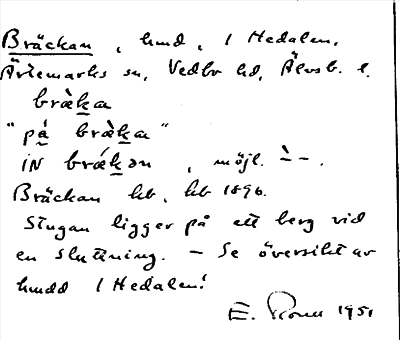 Bräckan, hmd, i Hedalen,
Ärtemarks sn, Vedbo hd, Älvsb. l.
bràka
"på bràka"
IN brákən, möjl. `– –.
Bräckan hb, kb 1896.
Stugan ligger på ett berg vid
en sluttning. – Se översikt av
hmdd i Hedalen!
E. 1951